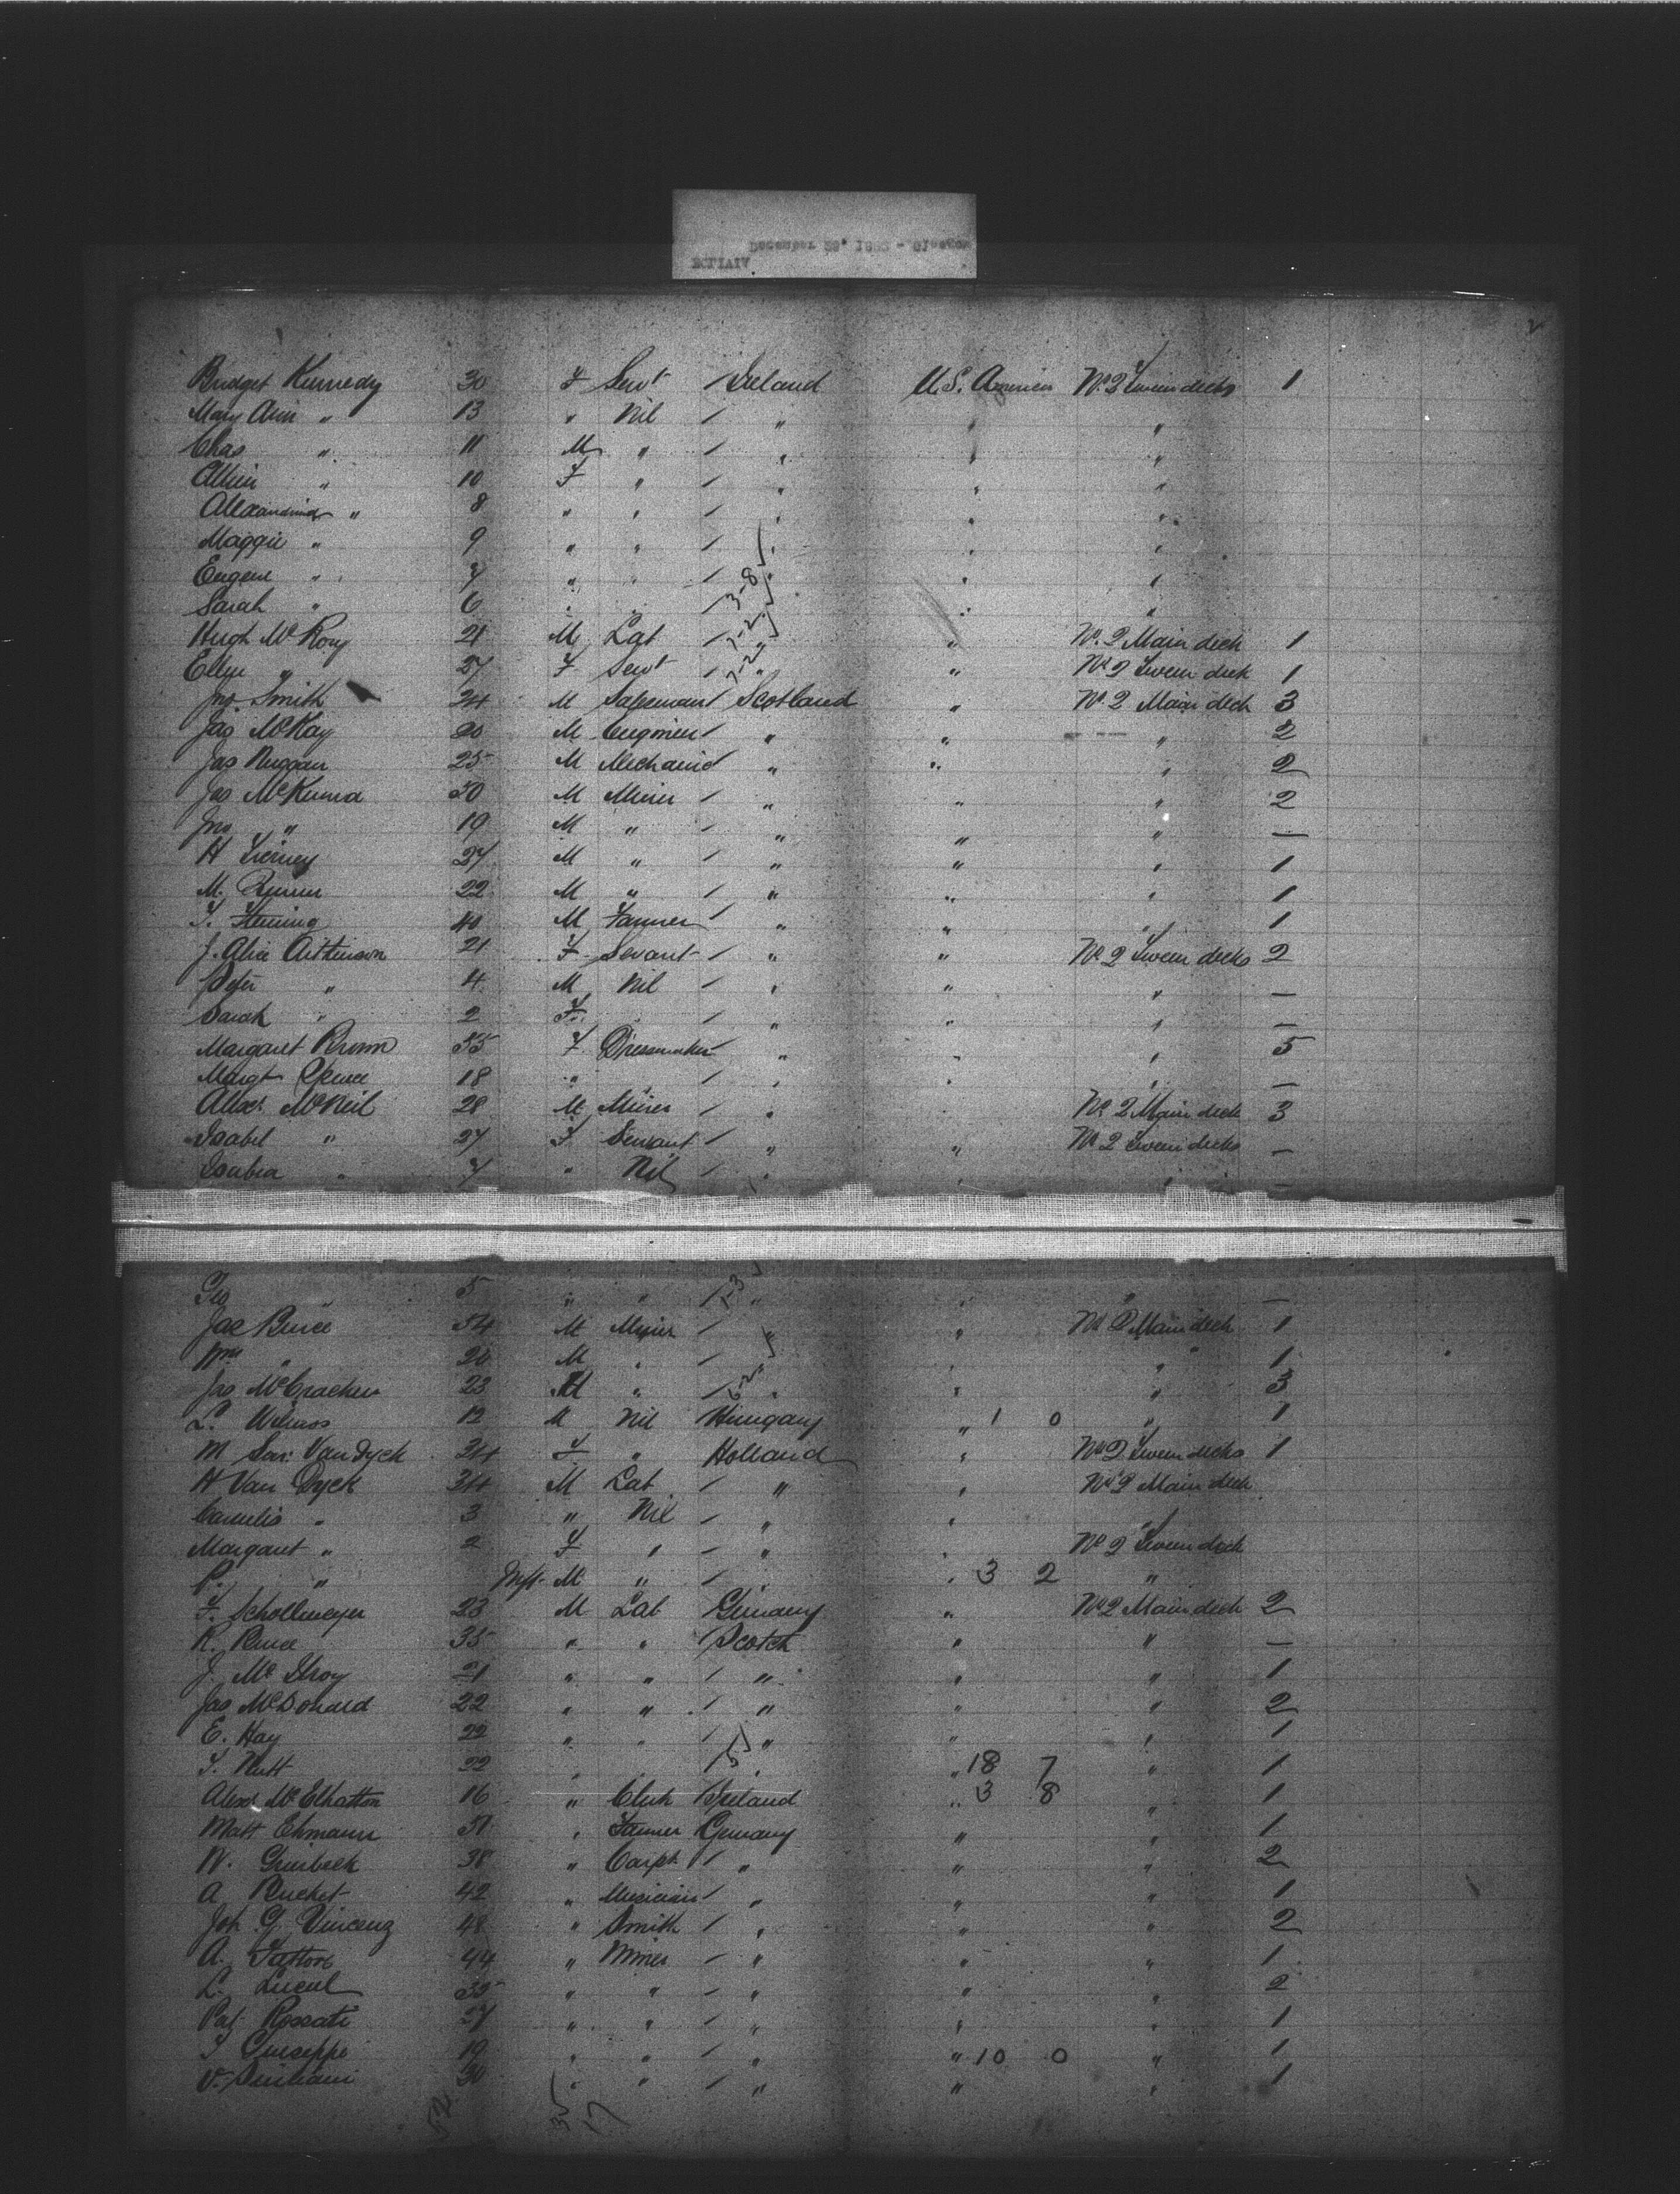 December 29" 18 - Glasgow
BOLIVIA
Bridget Kennedy 30 F Servt / Ireland U.S. America No 2 Tween decks 1
Mary Ann " 13 " Nil / " " "
Chas " 11 M " / " " "
" 10 F " / " " "
" 8 " " / " " "
Maggie " 9 " " / " " "
Eugene " 7 " " / " " "
Sarah " 6 " " / " " "
Hugh McRory 21 M Lab / " " No 2 Main deck 1
" 27 F Servt / " " No 2 Tween deck 1
Jno. Smith 24 M / Scotland " No 2 Main deck 3
Jas McKay 20 M Engineer / " " " 2
Jas Duggan 25 M Mechanic / " " " 2
Jas McKenna 50 M Miner / " " " 2
Jno " 19 M " / " " " —
H Tierney 37 M " / " " " 1
M. 22 M " / " " " 1
T. Fleming 40 M Farmer / " " " 1
J. Alice Aitkinson 21 F Servant / " " No 2 Tween decks 2
Peter " 4 M Nil / " " " —
Sarah " 2 F " / " " " —
Margaret Brown 55 F Dressmaker / " " " 5
Margt 18 " / " " " —
Alexr. McNeil 28 M Miner / " " No 2 Main deck 3
Isabel " 27 F Servant / " " No 2 Tween decks —
" 7 " Nil / " " " —
Geo " 5 " " / " " " —
Jas Bruce 54 M Miner / " " No 2 Main deck 1
Wm " 26 M " / " " " 1
Jas McCracken 23 M " / " " " 3
L. 12 M Nil Hungary " 1 0 " 1
M Van Dyck 24 F " Holland " No 2 Tween decks 1
H Van Dyck 34 M Lab / " " No 2 Main deck
Cornelis " 3 " Nil / " " "
Margaret " 2 F " / " " No 2 Tween deck
P. " Inft. M " / " " 3 2 "
F. Schollmeyer 23 M Lab Germany " No 2 Main deck 2
R. Bruce 35 " " Scotch " " —
J. McIlroy 21 " " / " " " 1
Jas McDonald 22 " " / " " " 2
E. Hay 22 " " / " " " 1
T. Nutt 22 " " / " " 18 7 " 1
Alexr McElhatton 16 " Clerk Ireland " 3 8 " 1
Matt Ehmann 51 " Farmer Germany " " 1
W. 38 " Carpt / " " " 2
A 42 " Musician / " " " 1
Joh G. Vincenz 48 " Smith / " " " 2
A. Fattore 44 " Miner / " " " 1
L. 35 " " / " " " 2
Rossati 27 " " / " " " 1
Giuseppe 19 " " / " " 10 0 " 1
V. 30 " " / " " " 1
52 35 17